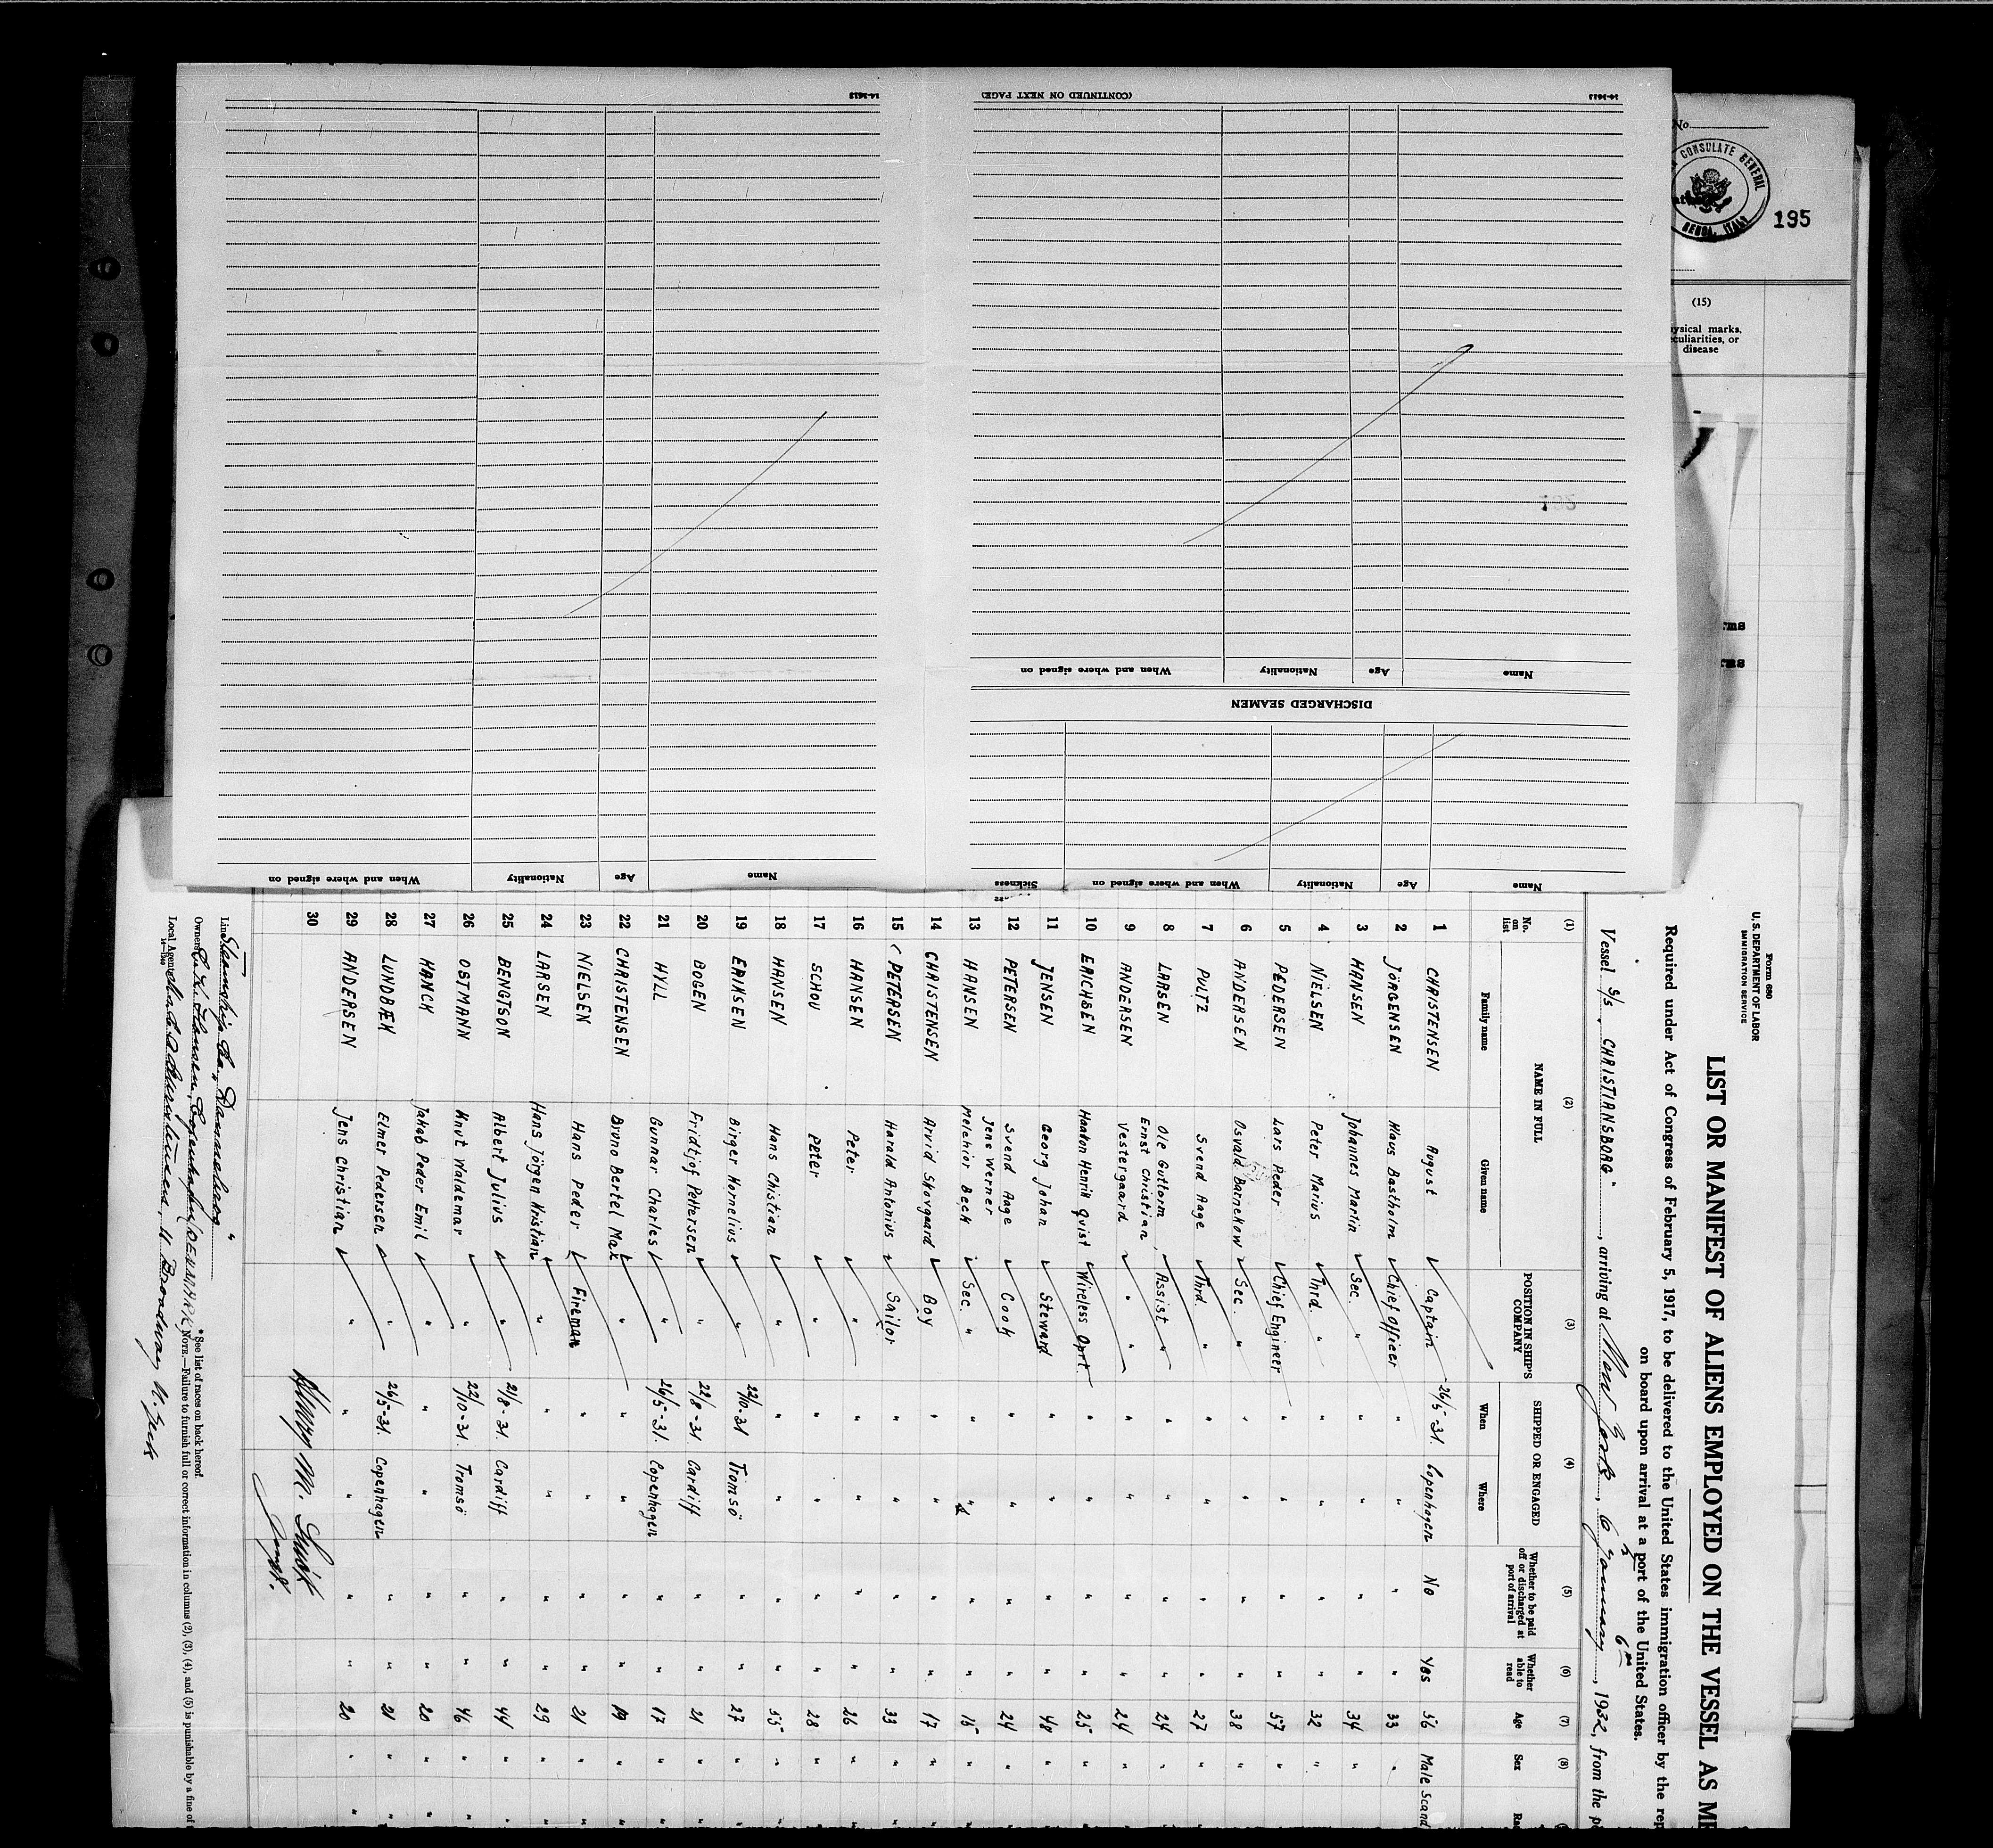 16-1613
(CONTINUED ON NEXT PAGE)
16-1613
Name
Age
Nationality
When and where signed on
DISCHARGED SEAMEN
Name
Age
Nationality
When and where signed on
Sickness
Name
Age
Nationality
When and where signed on
No.
CONSULATE GENERAL
GENOA, ITALY
195
(15)
ysical marks,
eculiarities, or
disease
Form 680
U. S. DEPARTMENT OF LABOR
IMMIGRATION SERVICE
LIST OR MANIFEST OF ALIENS EMPLOYED ON THE VESSEL AS ME
Required under Act of Congress of February 5, 1917, to be delivered to the United States immigration officer by the rep
on board upon arrival at a port of the United States.
Vessel S/S. "CHRISTIANSBORG", arriving at New York, 6 January, 1932, from the p
(1) (2) (3) (4) (5) (6) (7) (8)
No. on list NAME IN FULL POSITION IN SHIP'S COMPANY SHIPPED OR ENGAGED Whether to be paid off or discharged at port of arrival Whether able to read Age Sex Rac
Family name Given name When Where
1 CHRISTENSEN August Captain 26/5-31. Copenhagen No Yes 56 Male Scand
2 JÖRGENSEN Klaus Bastholm Chief Officer " " " " 33 "
3 HANSEN Johannes Martin Sec. " " " " " 34 "
4 NIELSEN Peter Marius Thrd. " " " " " 32 "
5 PEDERSEN Lars Peder Chief Engineer " " " " 57 "
6 ANDERSEN Osvald Barnekow Sec. " " " " " 38 "
7 PULTZ Svend Aage Thrd. " " " " " 27 "
8 LARSEN Ole Guttorm Assist " " " " " 24 "
9 ANDERSEN Ernst Christian Vestergaard " " " " " " 24 "
10 ERICHSEN Haakon Henrik Quist Wireless Oprt. " " " " 25 "
11 JENSEN Georg Johan Steward " " " " 48 "
12 PETERSEN Svend Aage Cook " " " " 24 "
13 HANSEN Jens Werner Melchior Beck Sec. " " " " " 15 "
14 CHRISTENSEN Arvid Skovgaard Boy " " " " 17 "
15 PETERSEN Harald Antonius Sailor " " " " 33 "
16 HANSEN Peter " " " " " 26 "
17 SCHOU Peter " " " " " 28 "
18 HANSEN Hans Chistian " " " " " 55 "
19 ERIKSEN Birger Kornelius " 22/10-31 Tromsö " " 27 "
20 BOGEN Fridtjof Pettersen " 22/8-31 Cardiff " " 21 "
21 HYLL Gunnar Charles " 26/5-31. Copenhagen " " 17 "
22 CHRISTENSEN Bruno Bertel Max " " " " " 19 "
23 NIELSEN Hans Peder Fireman " " " " 21 "
24 LARSEN Hans Jörgen Kristian " " " " " 29 "
25 BENGTSON Albert Julius " 21/8-31. Cardiff " " 44 "
26 OSTMANN Knut Waldemar " 22/10-31. Tromsö " " 46 "
27 HANCK Jakob Peder Emil " " " " " 20 "
28 LUNDBÆK Elmer Pedersen " 26/5-31. Copenhagen " " 21 "
29 ANDERSEN Jens Christian " " " " " 20 "
30
Line Steamship Co. "Dannebrog"
Owners C. K. Hansen, Copenhagen (DENMARK)
Local Agents
11 Broadway N. York
*See list of races on back hereof.
NOTE.—Failure to furnish full or correct information in columns (2), (3), (4), and (5) is punishable by a fine of